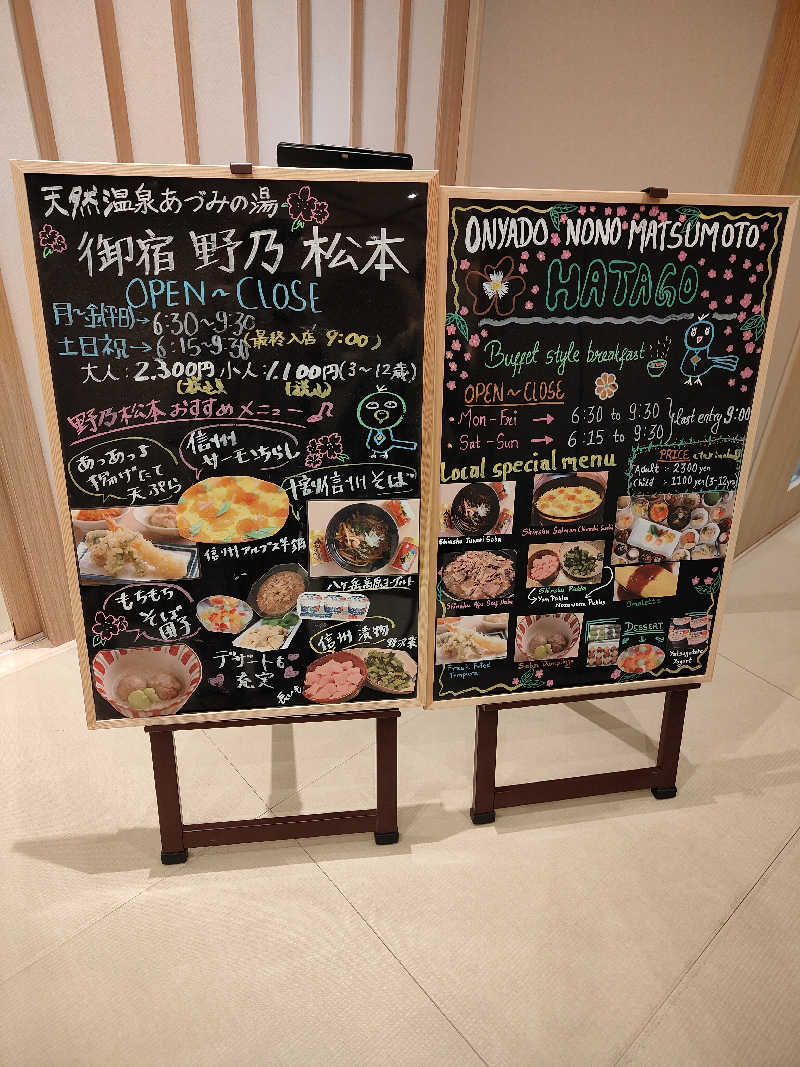 天然温泉あづみの湯
御宿 野乃 松本
OPEN～CLOSE
月～金(平日)→6:30～9:30
土日祝→6:15～9:30(最終入店 9:00)
大人:2.300円 小人:1.100円(3～12歳)
(税込) (税込)
野乃松本おすすめメニュー
あつあつよ
揚げたて
天ぷら
信州
サーモンちらし
信州そば
信州アルプス牛鍋
八ヶ岳高原ヨーグルト
もちもち
そば
団子
デザートも
充実
信州 漬物
野沢菜
ONYADO NONO MATSUMOTO
HATAGO
Buffet style breakfast
OPEN～CLOSE
Mon-Fri → 6:30 to 9:30
Sat-Sun → 6:15 to 9:30
last entry 9:00
PRICE
Adult : 2300 yen
Child : 1100 yen (3-12yrs)
Local special menu
Shinshu Salmon Chirashi Sushi
Shinshu
Soba
Shinshu Alps Beef Nabe
Shinshu Pickles
Yam Pickles
Nozawana Pickles
Omelette
Fresh Fried
Tempura
Soba Dumplings
DESSERT
Yatsugatake
Yogurt